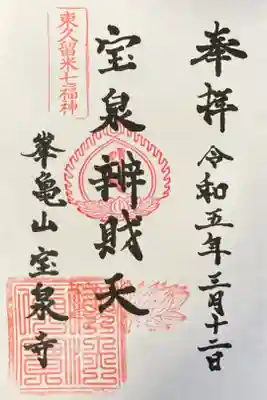 奉拝 令和五年三月十二日
宝泉辨財天
東久留米七福神
峯亀山 宝泉寺